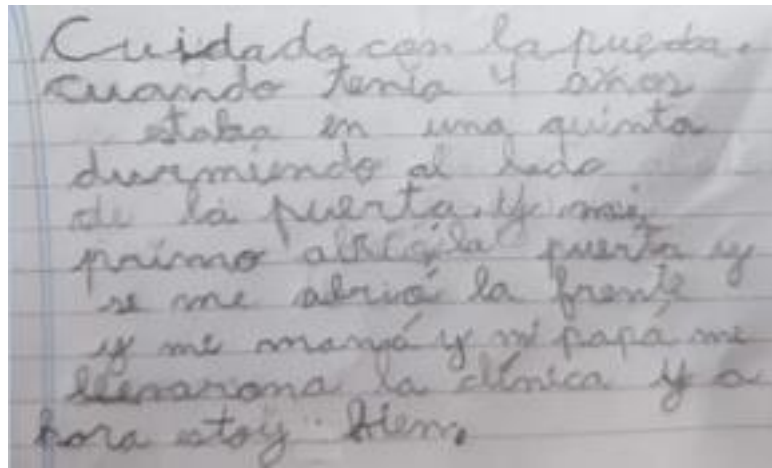 Cuidado con la puerta.
cuando tenía 4 años
estaba en una quinta
durmiendo al lado
de la puerta. y mi
primo abrió la puerta y
se me abrió la frente
y mi mamá y mi papá me
llevaron a la clínica y a
hora estoy bien.